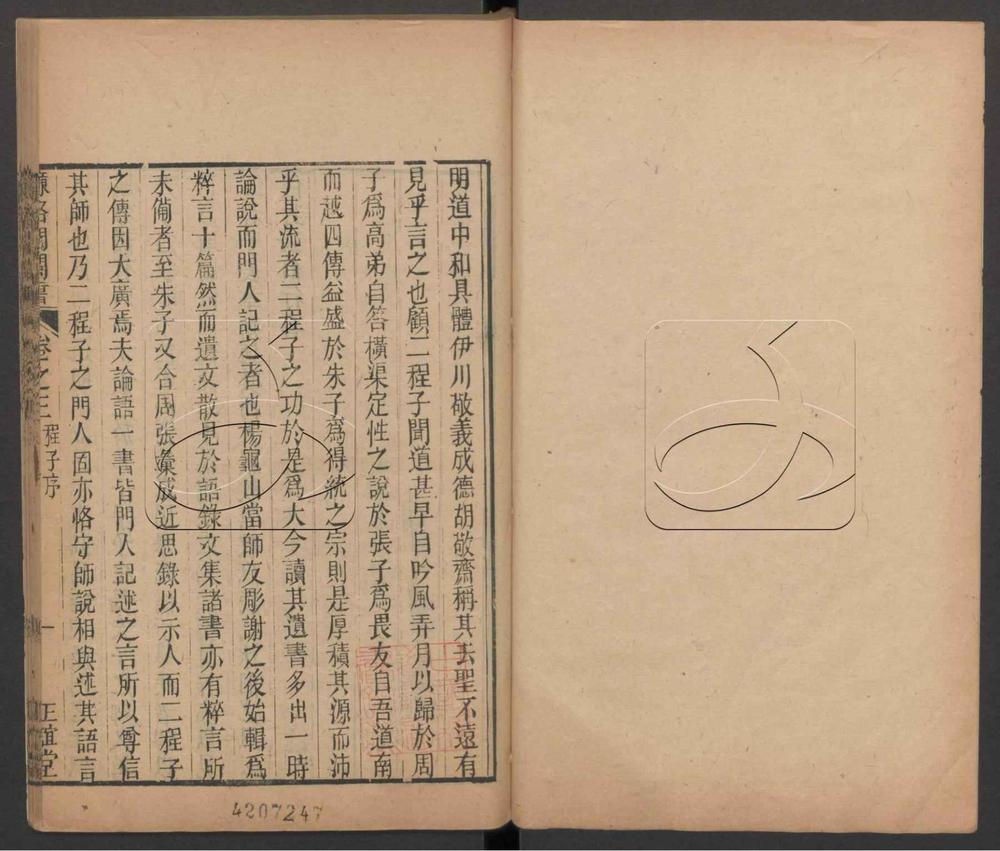 明道中和具體伊川敬義成德胡敬齋稱其去聖不遠有
見乎言之也顧二程子聞道甚早自吟風弄月以歸於周
子爲高弟自答橫渠定性之說於張子爲畏友自吾道南
而越四傳益盛於朱子爲得統之宗則是厚積其源而沛
乎其流者二程子之功於是爲大今讀其遺書多出一時
論說而門人記之者也楊龜山當師友彫謝之後始輯爲
粹言十篇然而遺文散見於語錄文集諸書亦有粹言所
未備者至朱子又合周張彙成近思錄以示人而二程子
之傳因大廣焉夫論語一書皆門人記述之言所以尊信
其師也乃二程子之門人固亦恪守師說相與述其語言
濂洛關閩書 卷之三 程子序 一 正誼堂
4207247